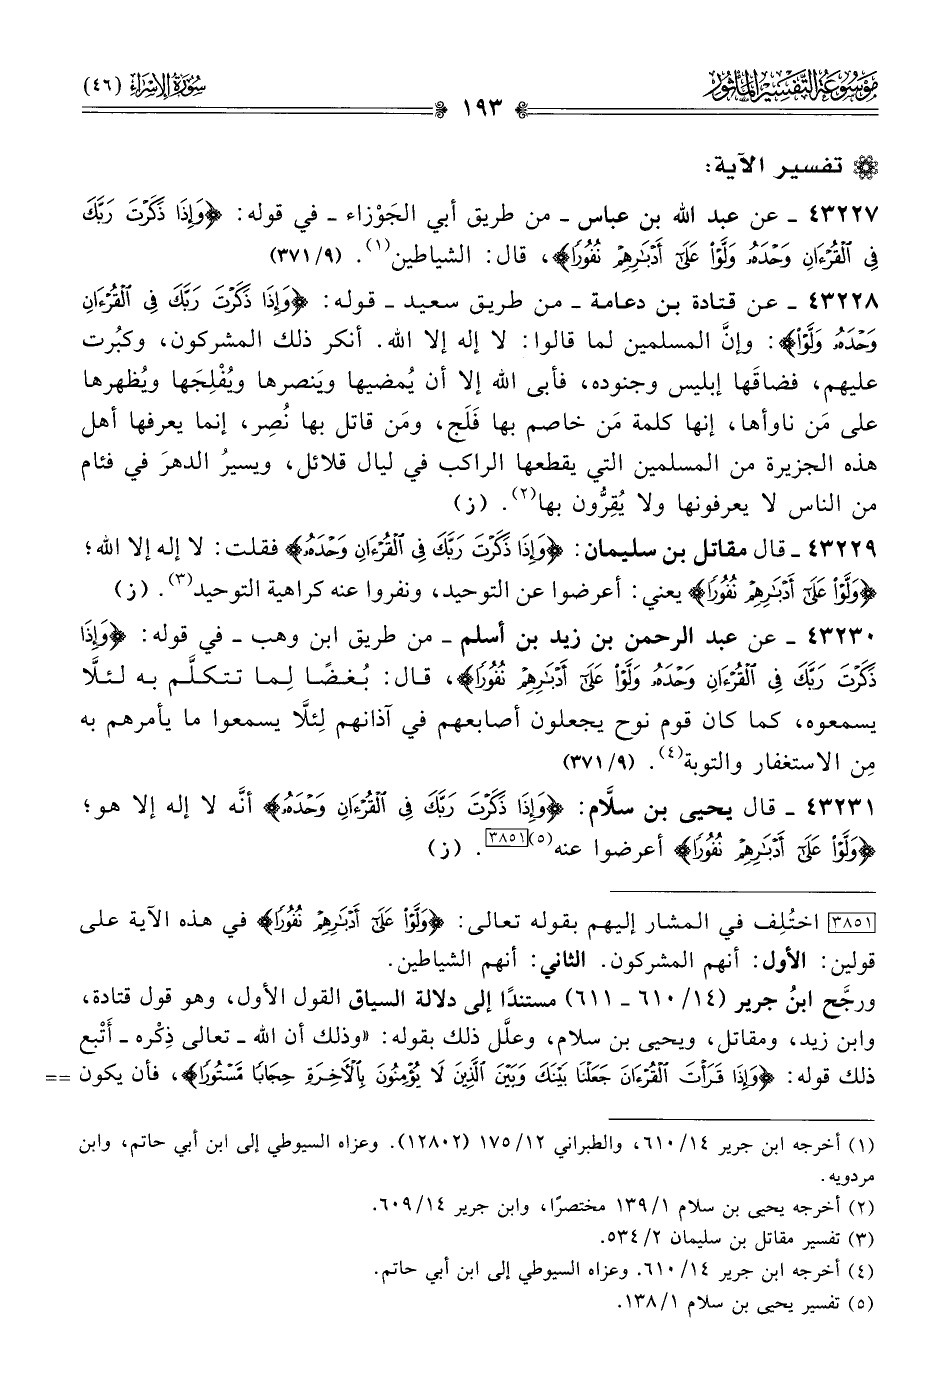 مَوْسُوعَةُ التَّفْسِيرِ المَأْثُورِ
سُورَةُ الإِسْرَاءِ (٤٦)
١٩٣
تفسير الآية:
٤٣٢٢٧ ـ عن عبد الله بن عباس ـ من طريق أبي الجَوْزاء ـ في قوله: ﴿وَإِذَا ذَكَرْتَ رَبَّكَ
فِى ٱلْقُرْءَانِ وَحْدَهُۥ وَلَّوْاْ عَلَىٰٓ أَدْبَٰرِهِمْ نُفُورًا﴾، قال: الشياطين(١). (٩/ ٣٧١)
٤٣٢٢٨ ـ عن قتادة بن دعامة ـ من طريق سعيد ـ قوله: ﴿وَإِذَا ذَكَرْتَ رَبَّكَ فِى ٱلْقُرْءَانِ
وَحْدَهُۥ وَلَّوْاْ﴾: وإنَّ المسلمين لما قالوا: لا إله إلا الله. أنكر ذلك المشركون، وكبُرت
عليهم، فضاقَها إبليس وجنوده، فأبى الله إلا أن يُمضيها ويَنصرها ويُفْلِجَها ويُظهرها
على مَن ناوأها، إنها كلمة مَن خاصم بها فَلَج، ومَن قاتل بها نُصِر، إنما يعرفها أهل
هذه الجزيرة من المسلمين التي يقطعها الراكب في ليال قلائل، ويسيرُ الدهرَ في فئام
من الناس لا يعرفونها ولا يُقِرُّون بها(٢). (ز)
٤٣٢٢٩ ـ قال مقاتل بن سليمان: ﴿وَإِذَا ذَكَرْتَ رَبَّكَ فِى ٱلْقُرْءَانِ وَحْدَهُۥ﴾ فقلت: لا إله إلا الله؛
﴿وَلَّوْاْ عَلَىٰٓ أَدْبَٰرِهِمْ نُفُورًا﴾ يعني: أعرضوا عن التوحيد، ونفروا عنه كراهية التوحيد(٣). (ز)
٤٣٢٣٠ ـ عن عبد الرحمن بن زيد بن أسلم ـ من طريق ابن وهب ـ في قوله: ﴿وَإِذَا
ذَكَرْتَ رَبَّكَ فِى ٱلْقُرْءَانِ وَحْدَهُۥ وَلَّوْاْ عَلَىٰٓ أَدْبَٰرِهِمْ نُفُورًا﴾، قال: بُغضًا لِما تتكلَّم به لئلَّا
يسمعوه، كما كان قوم نوح يجعلون أصابعهم في آذانهم لِئلَّا يسمعوا ما يأمرهم به
مِن الاستغفار والتوبة(٤). (٩/ ٣٧١)
٤٣٢٣١ ـ قال يحيى بن سلَّام: ﴿وَإِذَا ذَكَرْتَ رَبَّكَ فِى ٱلْقُرْءَانِ وَحْدَهُۥ﴾ أنَّه لا إله إلا هو؛
﴿وَلَّوْاْ عَلَىٰٓ أَدْبَٰرِهِمْ نُفُورًا﴾ أعرضوا عنه(٥) ٣٨٥١. (ز)
٣٨٥١ اختُلِف في المشار إليهم بقوله تعالى: ﴿وَلَّوْاْ عَلَىٰٓ أَدْبَٰرِهِمْ نُفُورًا﴾ في هذه الآية على
قولين: الأول: أنهم المشركون. الثاني: أنهم الشياطين.
ورجَّح ابنُ جرير (١٤/ ٦١٠ ـ ٦١١) مستندًا إلى دلالة السياق القول الأول، وهو قول قتادة،
وابن زيد، ومقاتل، ويحيى بن سلام، وعلَّل ذلك بقوله: «وذلك أن الله ـ تعالى ذِكْره ـ أَتْبع
ذلك قوله: ﴿وَإِذَا قَرَأْتَ ٱلْقُرْءَانَ جَعَلْنَا بَيْنَكَ وَبَيْنَ ٱلَّذِينَ لَا يُؤْمِنُونَ بِٱلْأَخِرَةِ حِجَابًا مَّسْتُورًا﴾، فأن يكون ==
(١) أخرجه ابن جرير ١٤/ ٦١٠، والطبراني ١٢/ ١٧٥ (١٢٨٠٢). وعزاه السيوطي إلى ابن أبي حاتم، وابن
مردويه.
(٢) أخرجه يحيى بن سلام ١/ ١٣٩ مختصرًا، وابن جرير ١٤/ ٦٠٩.
(٣) تفسير مقاتل بن سليمان ٢/ ٥٣٤.
(٤) أخرجه ابن جرير ١٤/ ٦١٠. وعزاه السيوطي إلى ابن أبي حاتم.
(٥) تفسير يحيى بن سلام ١/ ١٣٨.